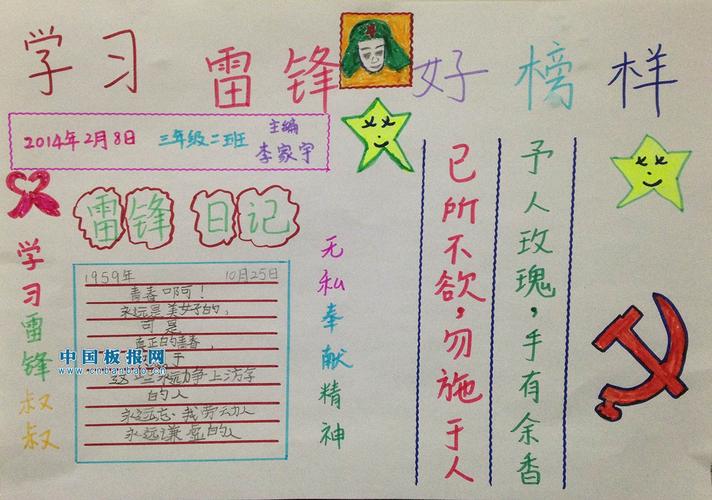 学习雷锋好榜样
2014年2月8日 三年级二班 主编 李家宇
雷锋日记
1959年 10月25日
青春啊！
永远是美好的，
可是
真正的青春，
于
这些永远力争上游
的人
永远忘我劳动人
永远谦虚的人
学习雷锋叔叔
无私奉献精神
已所不欲，勿施于人
予人玫瑰，手有余香
中国板报网
www.cnbanbao.cn